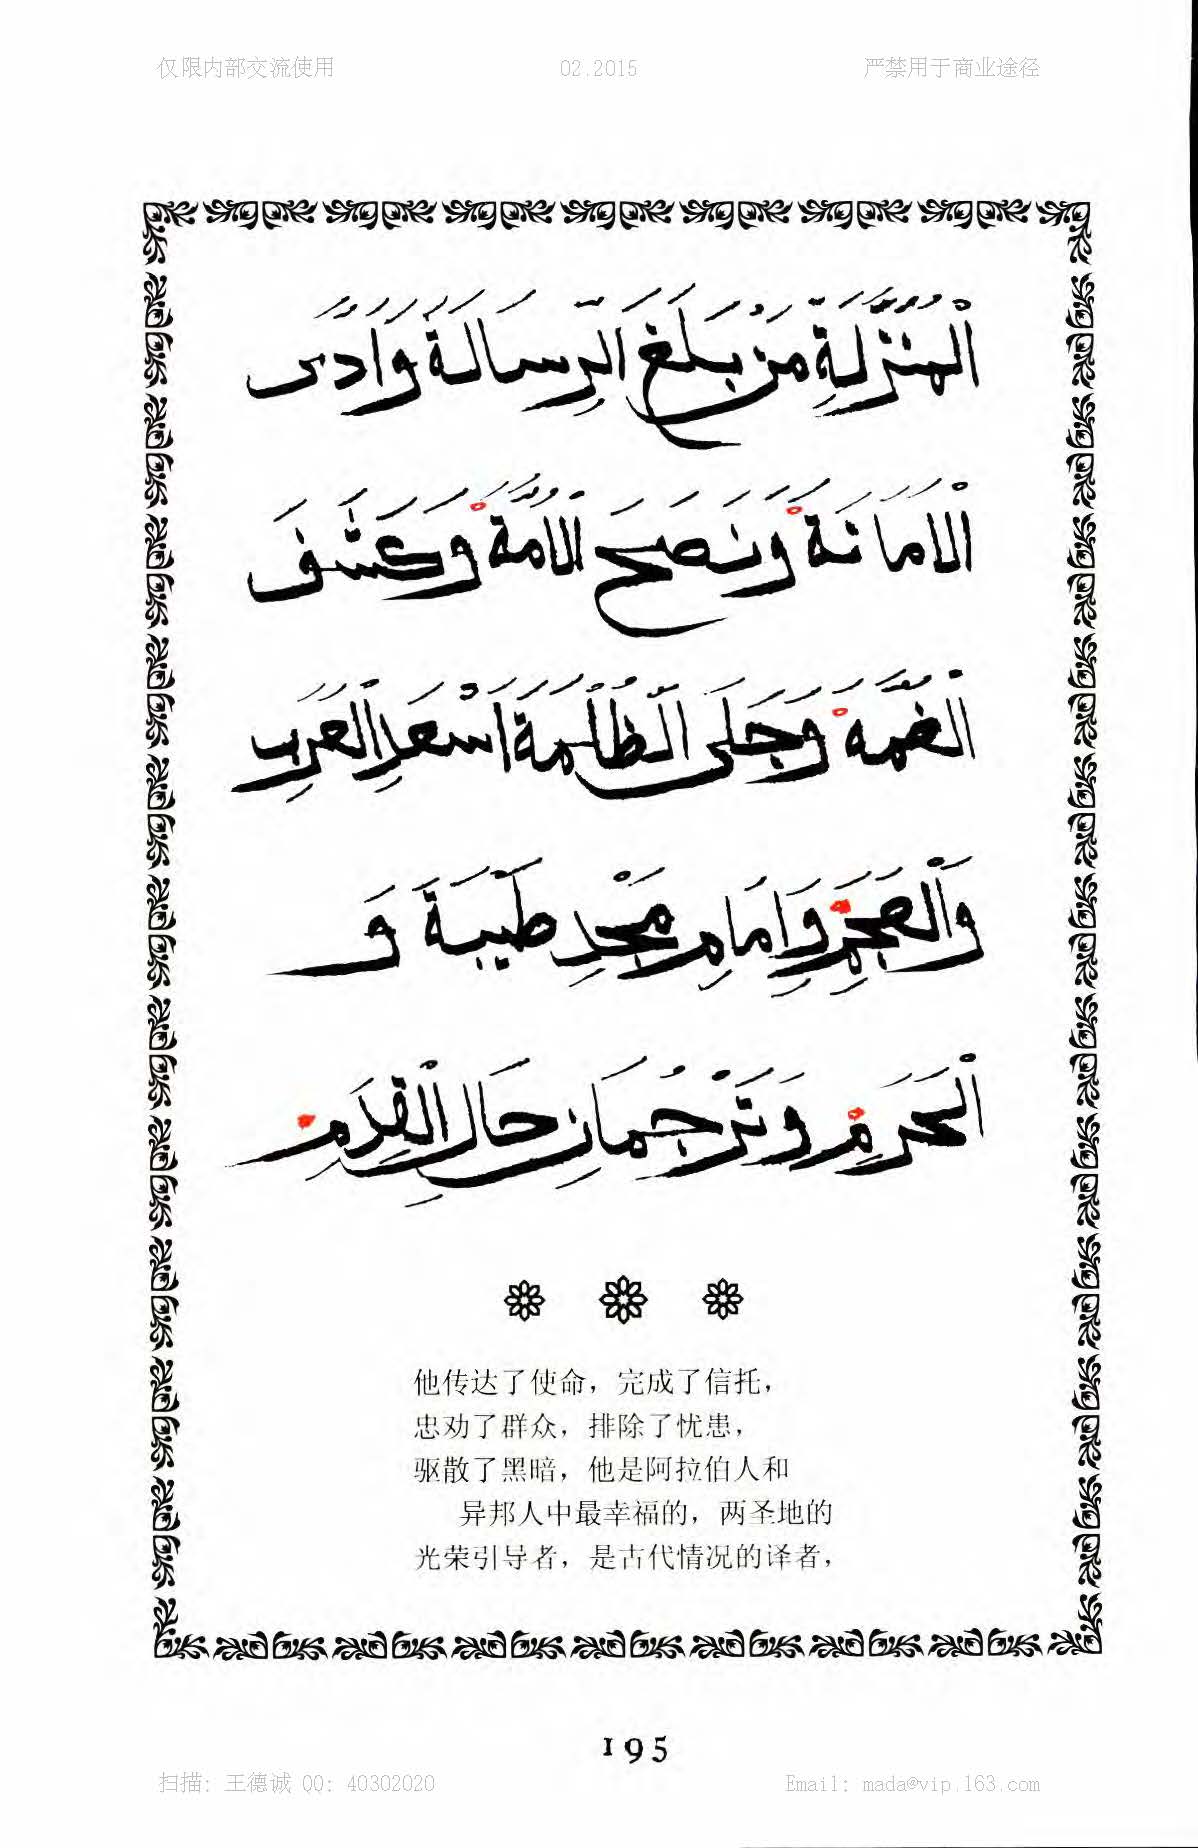 仅限内部交流使用 02.2015 严禁用于商业途径
الْمُنَزَّلَةِ مَنْ بَلَغَ الرِّسَالَةَ وَادَى
الْاَمَانَةَ وَنَصَحَ الْاُمَّةَ وَكَشَفَ
الْغُمَّةَ وَجَلَى الظُّلْمَةَ اَسْعَدِ الْعَرَبِ
وَالْعَجَمِ وَاِمَامِ مَجْدِ طَيْبَةَ وَ
الْحَرَمِ وَتَرْجُمَانِ حَالِ الْقِدَمِ
他传达了使命，完成了信托，
忠劝了群众，排除了忧患，
驱散了黑暗，他是阿拉伯人和
异邦人中最幸福的，两圣地的
光荣引导者，是古代情况的译者，
195
扫描: 王德诚 QQ: 40302020 Email: mada@vip.163.com